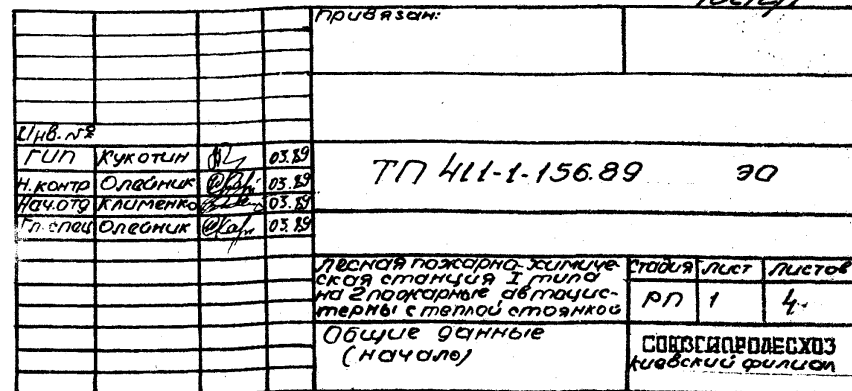 Привязан:
Инв. №
ГИП Кукотин 03.89
Н.контр Олейник 03.89
Нач.отд Клименко 03.89
Гл.спец Олейник 03.89
ТП 411-1-156.89 ЭО
Лесная пожарно-химиче-
ская станция I типа
на 2 пожарные автоцис-
терны с теплой стоянкой
Стадия Лист Листов
РП 1 4
Общие данные
(начало)
СОЮЗГИПРОЛЕСХОЗ
киевский филиал